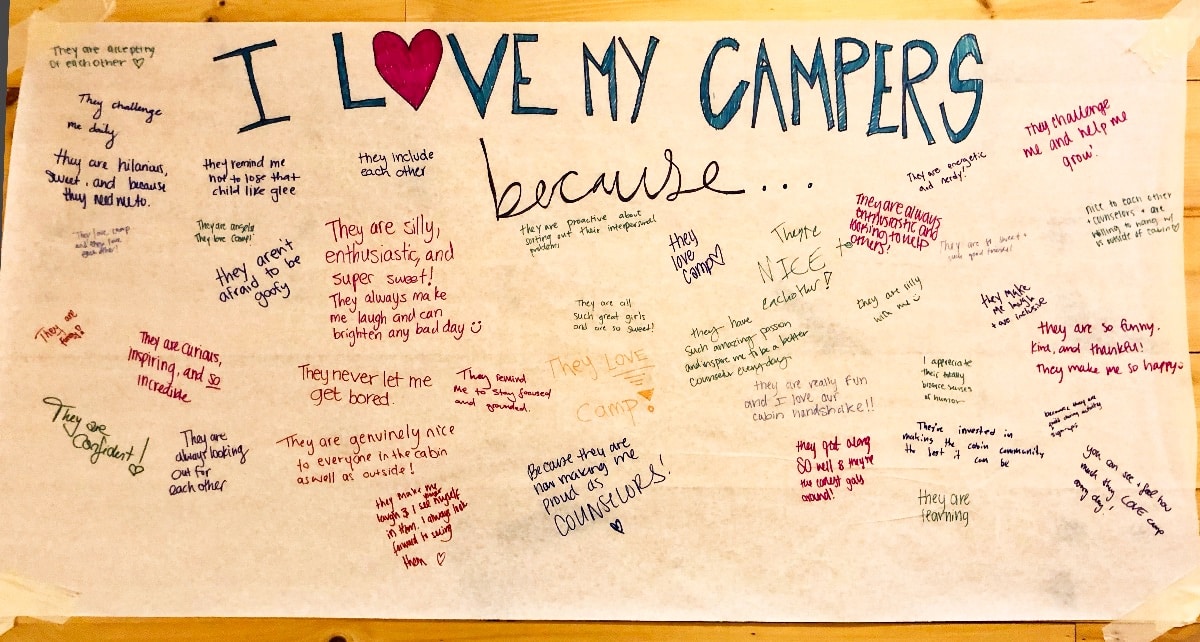 I LOVE MY CAMPERS
because...
They are accepting
of each other ♡
They challenge
me daily
they are hilarious,
sweet, and because
they need me to.
they remind me
not to lose that
child like glee
they include
each other
They are energetic
and nerdy!
They challenge
me and help me
grow!
They love camp
and they love
each other!
They are angels
They love camp!
they aren't
afraid to be
goofy
They are silly,
enthusiastic, and
super sweet!
They always make
me laugh and can
brighten any bad day ☺
they are proactive about
sorting out their interpersonal
problems
they
love
camp ♡
They're
NICE to
eachother!
They are always
enthusiastic and
looking to help
others!
They are so sweet +
such good
nice to each other
+ counselors + are
willing to hang w/
us outside of cabin ♡
They are
funny!
They are curious,
inspiring, and so
incredible
They are all
such great girls
and are so sweet!
they have
such amazing passion
and inspire me to be a better
counselor everyday
they are silly
with me ☺
they make
me laugh
+ are inclusive
they are so funny,
kind, and thankful!
They make me so happy ☺
They never let me
get bored.
They remind
me to stay focused
and grounded.
They LOVE
camp!
they are really fun
and I love our
cabin handshake!!
I appreciate
their totally
bizarre senses
of humor
because they are
good during activity
signups
They are
confident! ♡
They are
always looking
out for
each other
They are genuinely nice
to everyone in the cabin
as well as outside!
they make me
laugh & I see myself
in them. I always look
forward to seeing
them ♡
Because they are
now making me
proud as
COUNSELORS!
♡
they get along
SO well & they're
the coolest gals
around!
They're invested in
making the cabin community
the best it can be
they are
learning
you can see + feel how
much they LOVE camp
every day!